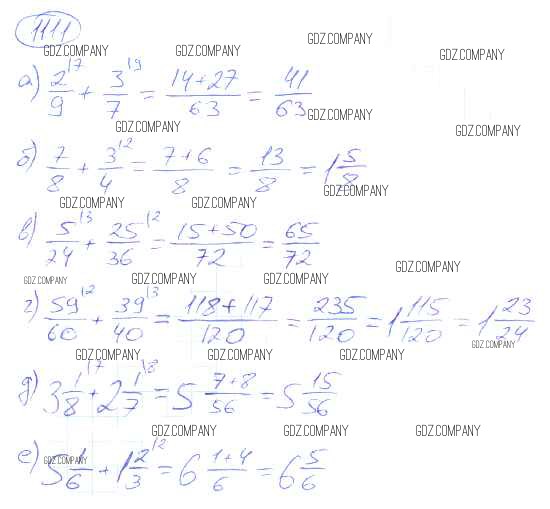 1111
GDZ.COMPANY GDZ.COMPANY GDZ.COMPANY GDZ.COMPANY
а) 2/9 \7 + 3/7 \9 = (14+27)/63 = 41/63
GDZ.COMPANY GDZ.COMPANY GDZ.COMPANY
б) 7/8 + 3/4 \2 = (7+6)/8 = 13/8 = 1 5/8
GDZ.COMPANY GDZ.COMPANY GDZ.COMPANY
в) 5/24 \3 + 25/36 \2 = (15+50)/72 = 65/72
GDZ.COMPANY GDZ.COMPANY GDZ.COMPANY GDZ.COMPANY
г) 59/60 \2 + 39/40 \3 = (118+117)/120 = 235/120 = 1 115/120 = 1 23/24
GDZ.COMPANY GDZ.COMPANY GDZ.COMPANY GDZ.COMPANY
д) 3 1/8 \7 + 2 1/7 \8 = 5 (7+8)/56 = 5 15/56
GDZ.COMPANY GDZ.COMPANY GDZ.COMPANY
е) 5 1/6 + 1 2/3 \2 = 6 (1+4)/6 = 6 5/6
GDZ.COMPANY